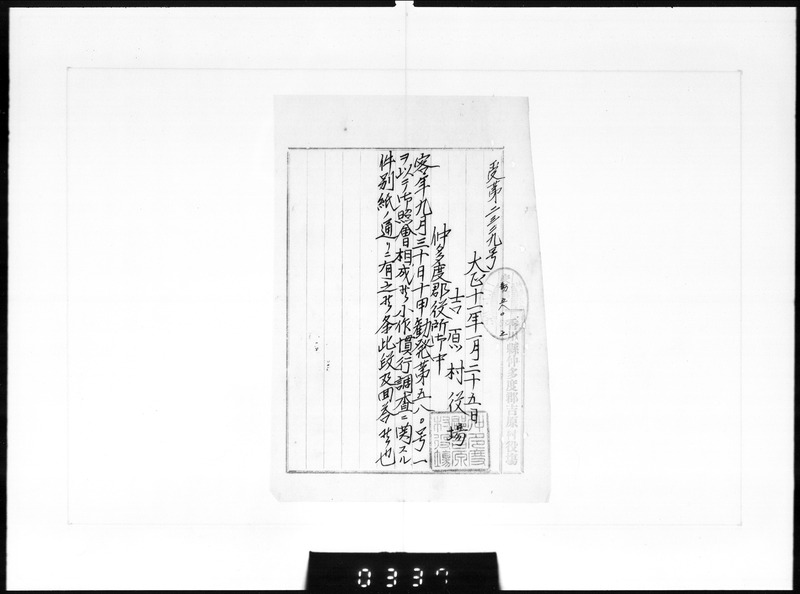 受第二三二九号
大正十一年一月二十五日
吉原村役場
仲多度郡役所御中
客年九月三十日十甲勧発第五八〇号一
ヲ以テ御照會相成候小作慣行調査ニ関スル
件別紙ノ通リニ有之候条此段及回答候也
香川縣仲多度郡吉原村役場
0337